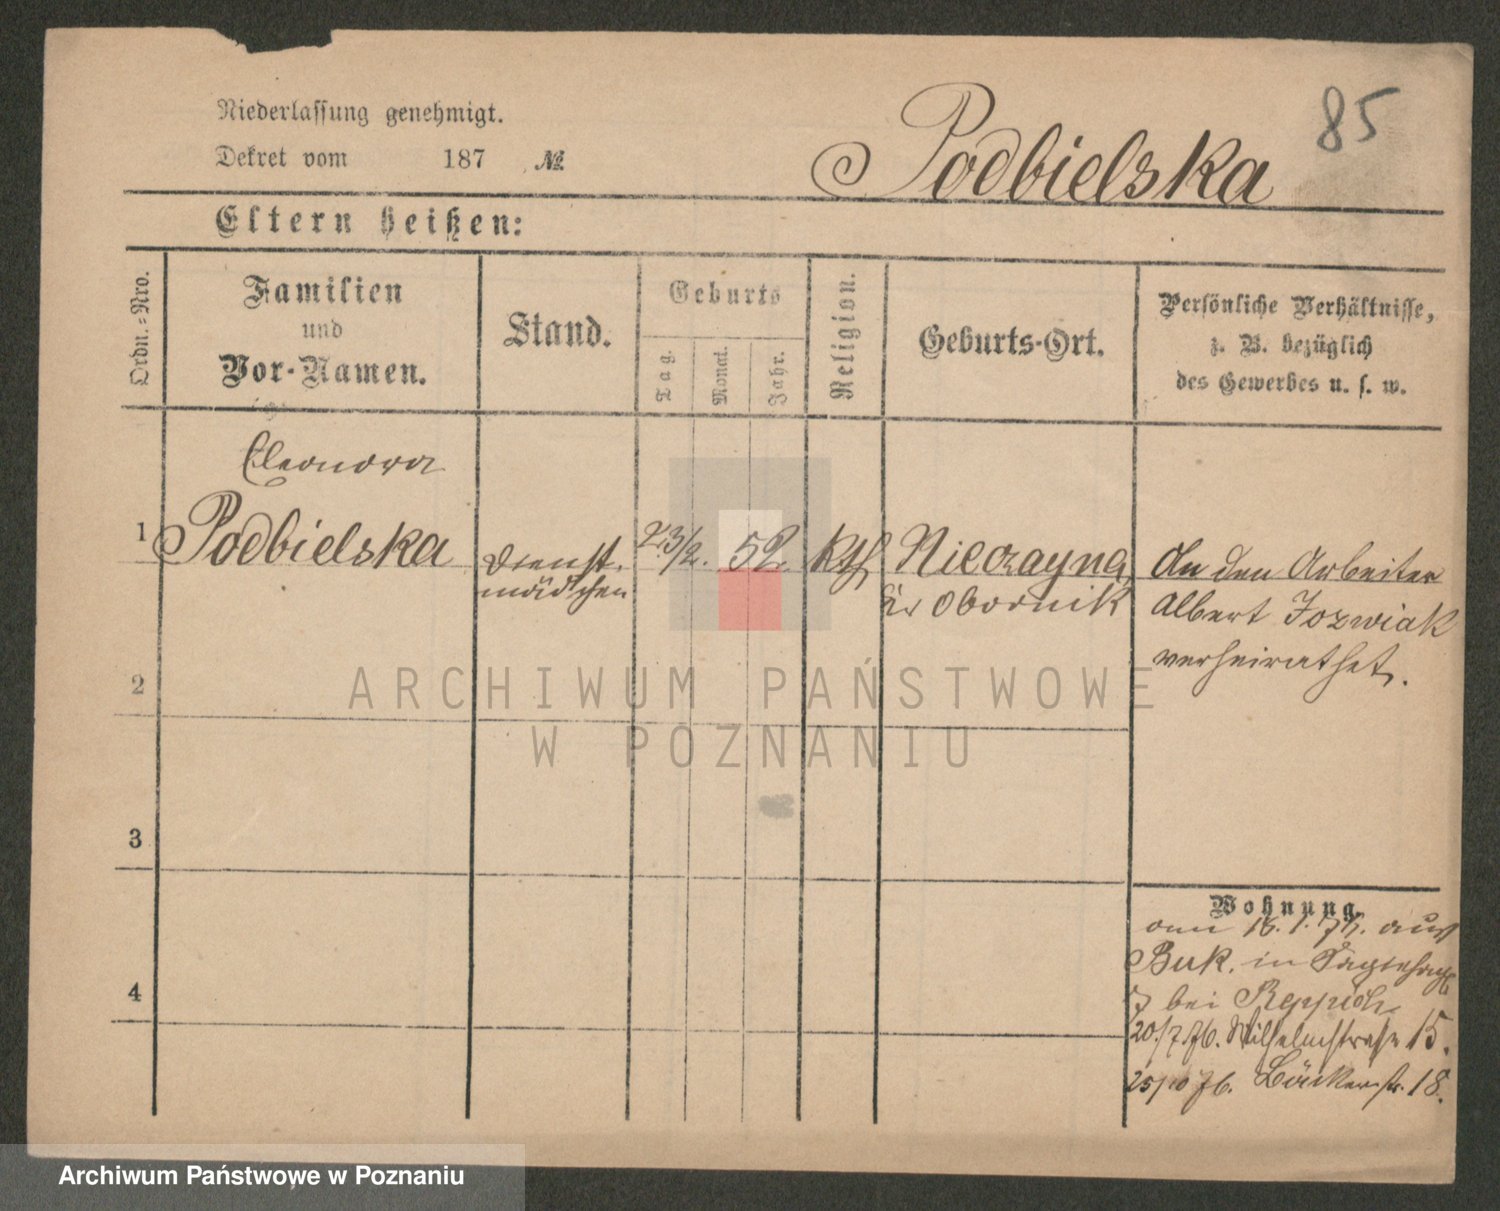 Niederlassung genehmigt.
Dekret vom 187 №
Podbielska
85
Eltern heißen:
Ordn.-Nro.
Familien
und
Vor-Namen.
Stand.
Geburts
Tag.
Monat.
Jahr.
Religion.
Geburts-Ort.
Persönliche Verhältnisse,
z. B. bezüglich
des Gewerbes u. s. w.
Eleonora
1 Podbielska
Dienst-
mädchen
23/2. 52. kth
Kr Obornik
An den Arbeiter
Albert Jozwiak
verheirathet.
2
3
4
Wohnung.
am 16.1.76. aus
Buk. in
7 bei
20./7.76. Wilhelmstraße 15.
25/10 76. Bäckerstr. 18.
ARCHIWUM PAŃSTWOWE
W POZNANIU
Archiwum Państwowe w Poznaniu